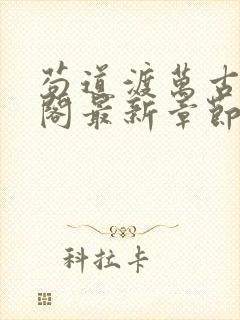 苟道渡萬古
閣最新章節
科拉卡